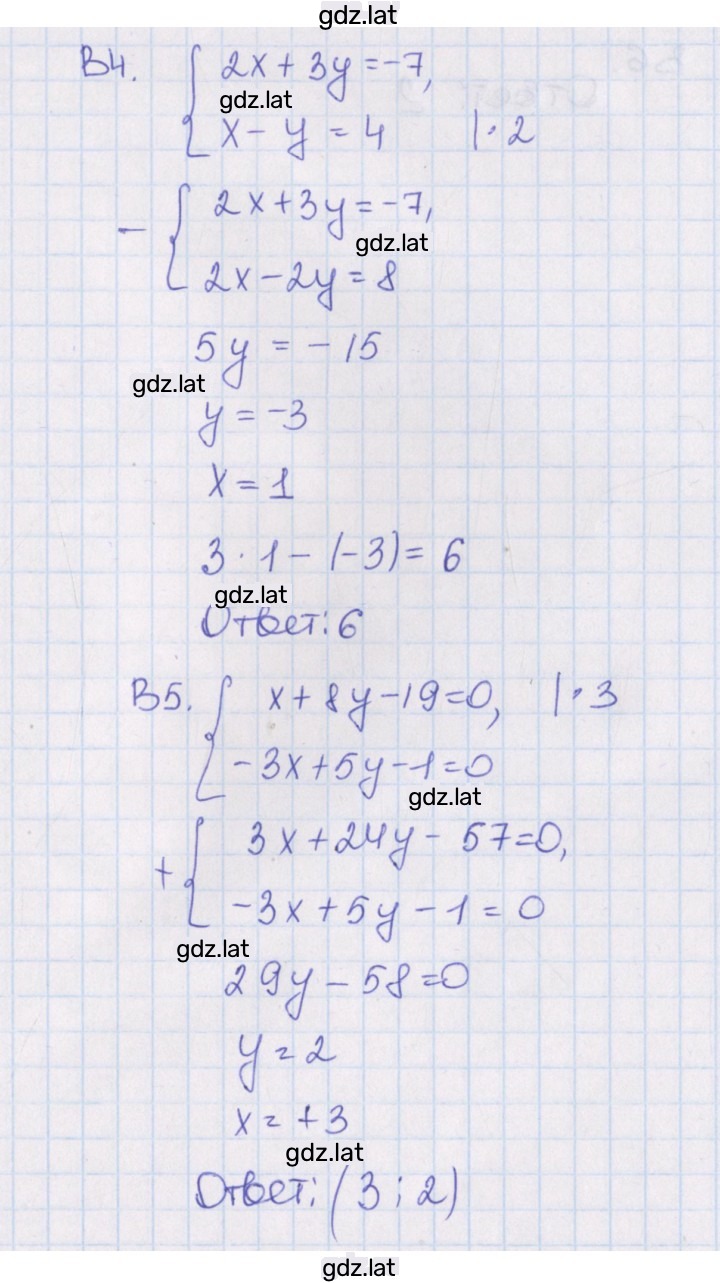 gdz.lat
В4. { 2x + 3y = -7,
gdz.lat
x - y = 4 | · 2
- { 2x + 3y = -7,
gdz.lat
2x - 2y = 8
5y = -15
gdz.lat
y = -3
x = 1
3 · 1 - (-3) = 6
gdz.lat
Ответ: 6
В5. { x + 8y - 19 = 0, | · 3
-3x + 5y - 1 = 0
gdz.lat
+ { 3x + 24y - 57 = 0,
-3x + 5y - 1 = 0
gdz.lat
29y - 58 = 0
y = 2
x = +3
gdz.lat
Ответ: (3; 2)
gdz.lat